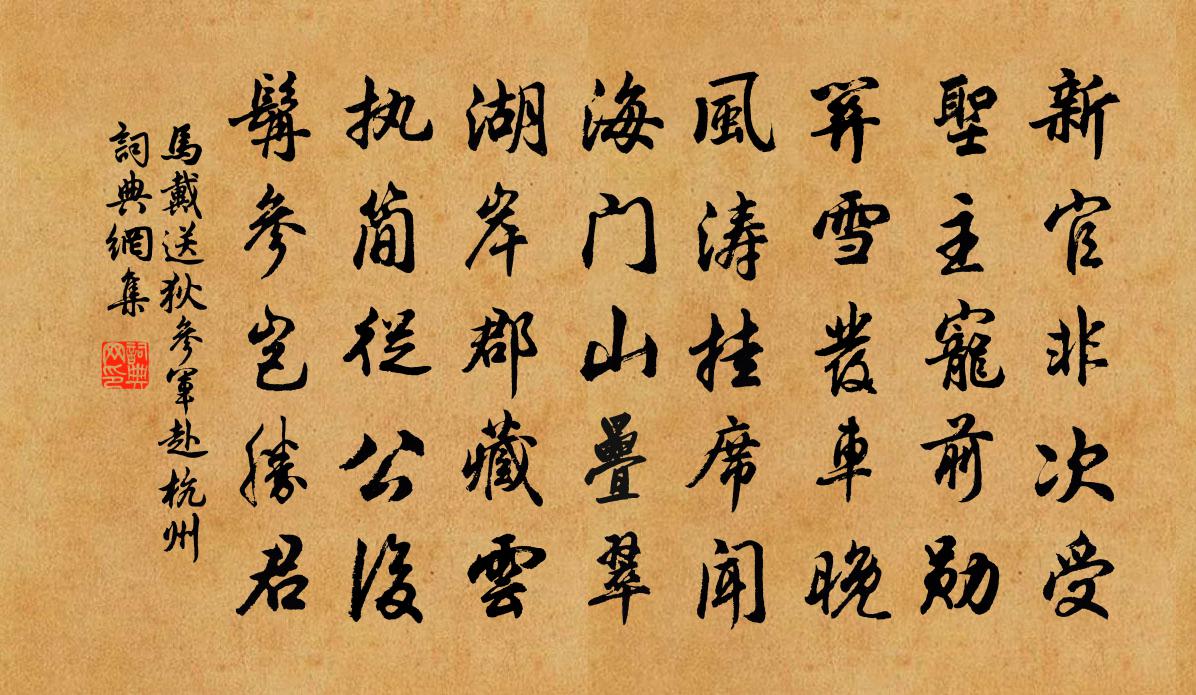 新官非次受
聖主寵前勋
关雪發車晚
風濤挂席聞
海门山疊翠
湖岸郡藏雲
执简從公後
髯參岂勝君
馬戴送狄參軍赴杭州
詞典網集
詞典网印